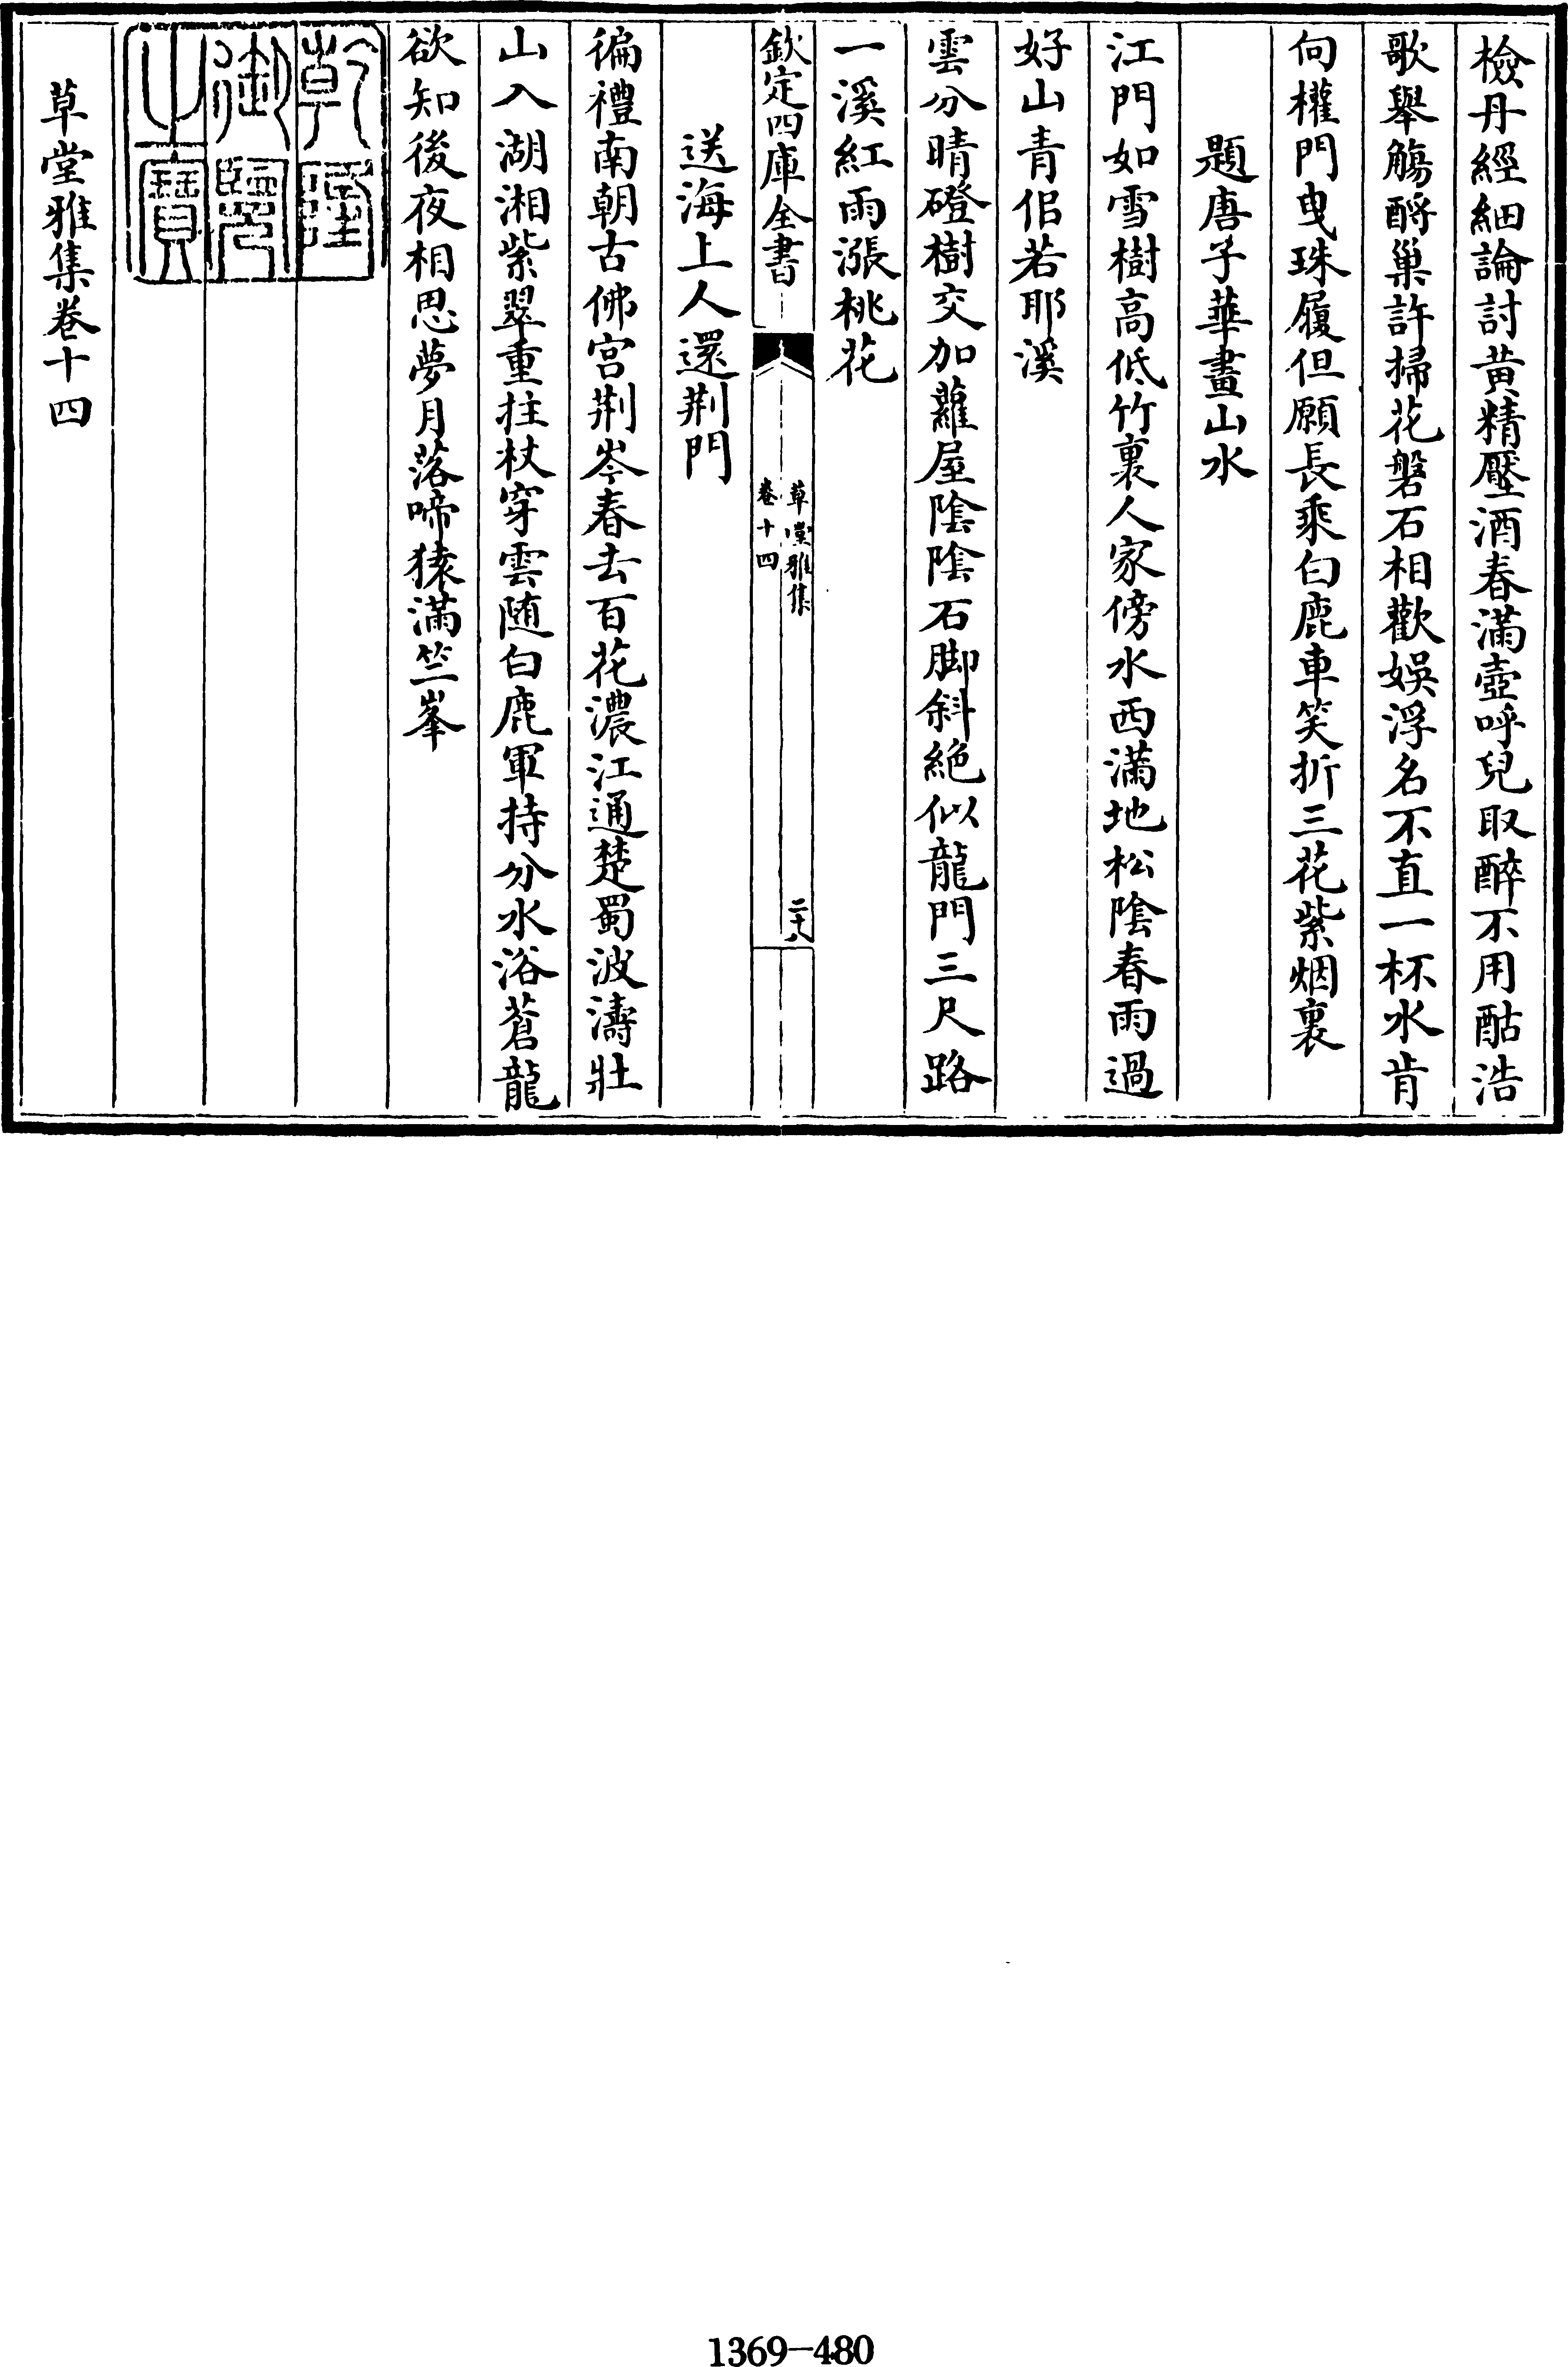 檢丹經細論討黄精壓酒春滿壺呼兒取醉不用酤浩
歌舉觴酹巢許掃花磐石相歡娛浮名不直一杯水肯
向權門曳珠履但願長乘白鹿車笑折三花紫烟裏
題唐子華畫山水
江門如雪樹高低竹裏人家傍水西滿地松隂春雨過
好山青佀若耶溪
雲分晴磴樹交加蘿屋隂隂石脚斜絶似龍門三尺路
一溪紅雨漲桃花
欽定四庫全書
草堂雅集
卷十四
二十九
送海上人還荆門
徧禮南朝古佛宫荆岑春去百花濃江通楚蜀波濤壯
山入湖湘紫翠重拄杖穿雲随白鹿軍持分水浴蒼龍
欲知後夜相思夢月落啼猿滿竺峯
乾隆
御覽
之寶
草堂雅集卷十四
1369-480